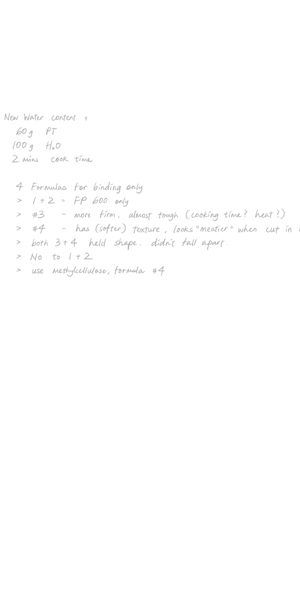 New Water content +
60g PT
100g H2O
2 mins cook time
4 Formulas for binding only
> 1+2 = PP 600 only
> #3 - more firm, almost tough (cooking time? heat?)
> #4 - has (softer) texture, looks "meatier" when cut in
> both 3+4 held shape. didn't fall apart
> No to 1+2
> use methylcellulose, formula #4